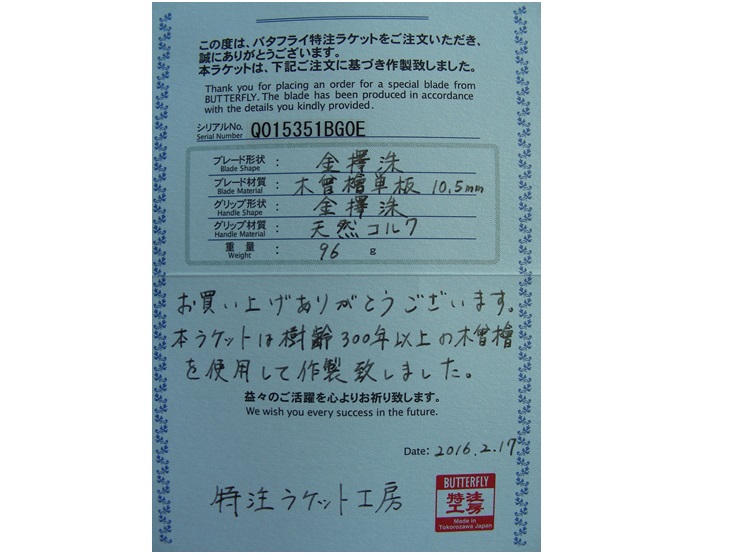 この度は、バタフライ特注ラケットをご注文いただき、
誠にありがとうございます。
本ラケットは、下記ご注文に基づき作製致しました。
Thank you for placing an order for a special blade from
BUTTERFLY. The blade has been produced in accordance
with the details you kindly provided.
シリアルNo. QO15351BGOE
Serial Number
ブレード形状 : 金擇洙
Blade Shape
ブレード材質 : 木曾檜単板 10.5mm
Blade Material
グリップ形状 : 金擇洙
Handle Shape
グリップ材質 : 天然コルク
Handle Material
重量 : 96 g
Weight
お買い上げありがとうございます。
本ラケットは樹齢300年以上の木曾檜
を使用して作製致しました。
益々のご活躍を心よりお祈り致します。
We wish you every success in the future.
Date: 2016.2.17
特注ラケット工房
BUTTERFLY
特注
工房
Made in
Tokorozawa Japan